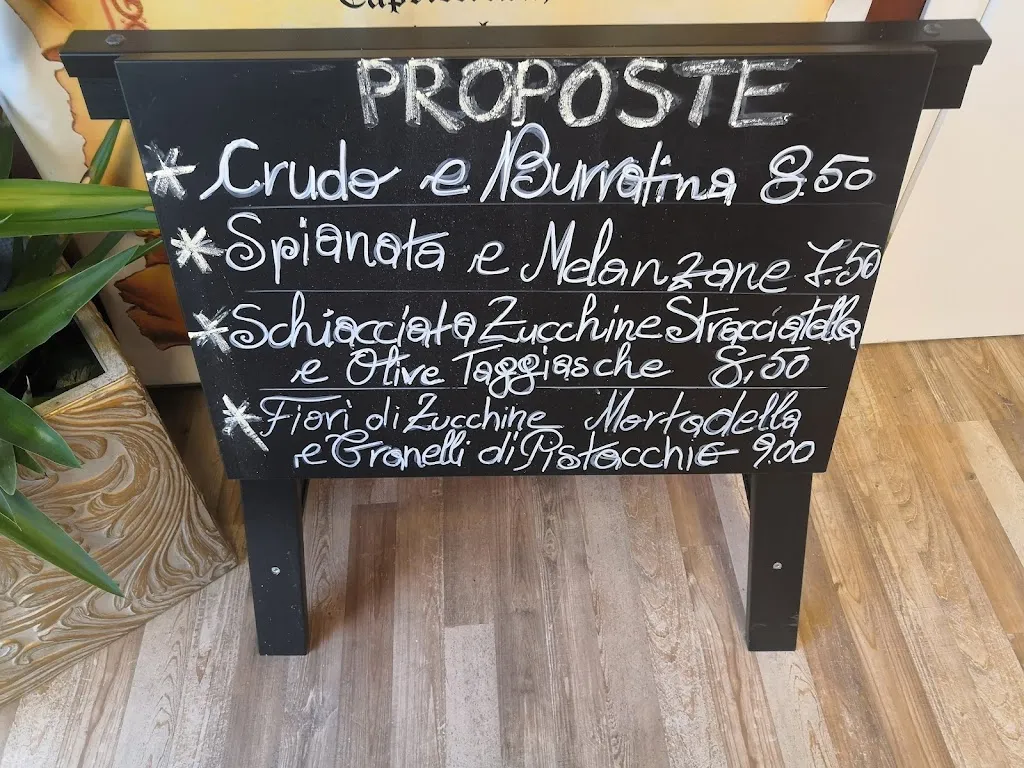 PROPOSTE
* Crudo e Burratina 8.50
* Spianata e Melanzane 7.50
* Schiacciata Zucchine Stracciatella
e Olive Taggiasche 8,50
* Fiori di Zucchine Mortadella
e Granelli di Pistacchio 9.00